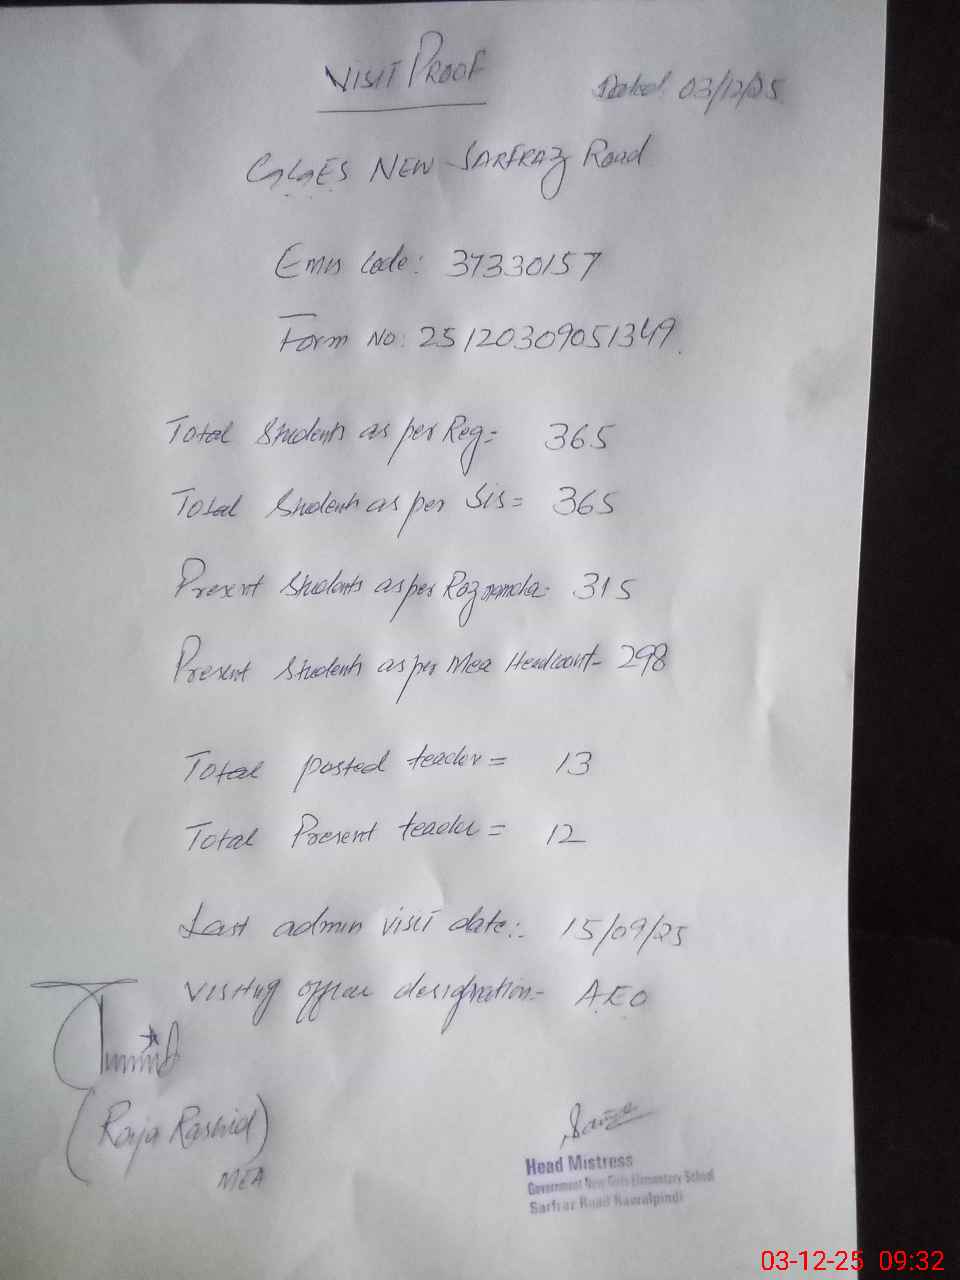 VISIT PROOF
Dated 03/12/25
GGES NEW SARFRAZ Road
Emis Code: 37330157
Form No: 25120309051349.
Total Students as per Reg = 365
Total Students as per Sis = 365
Present Students as per Roznamcha - 315
Present Students as per Mea Headcount - 298
Total posted teacher = 13
Total Present teacher = 12
Last admin visit date:- 15/09/25
Visiting officer designation - AEO
(Raja Rashid)
MEA
Head Mistress
Government New Girls Elementary School
Sarfraz Road Rawalpindi
03-12-25 09:32